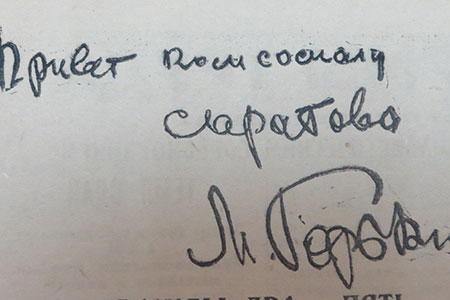 Привет комсомолу
Саратова
М. Горьки